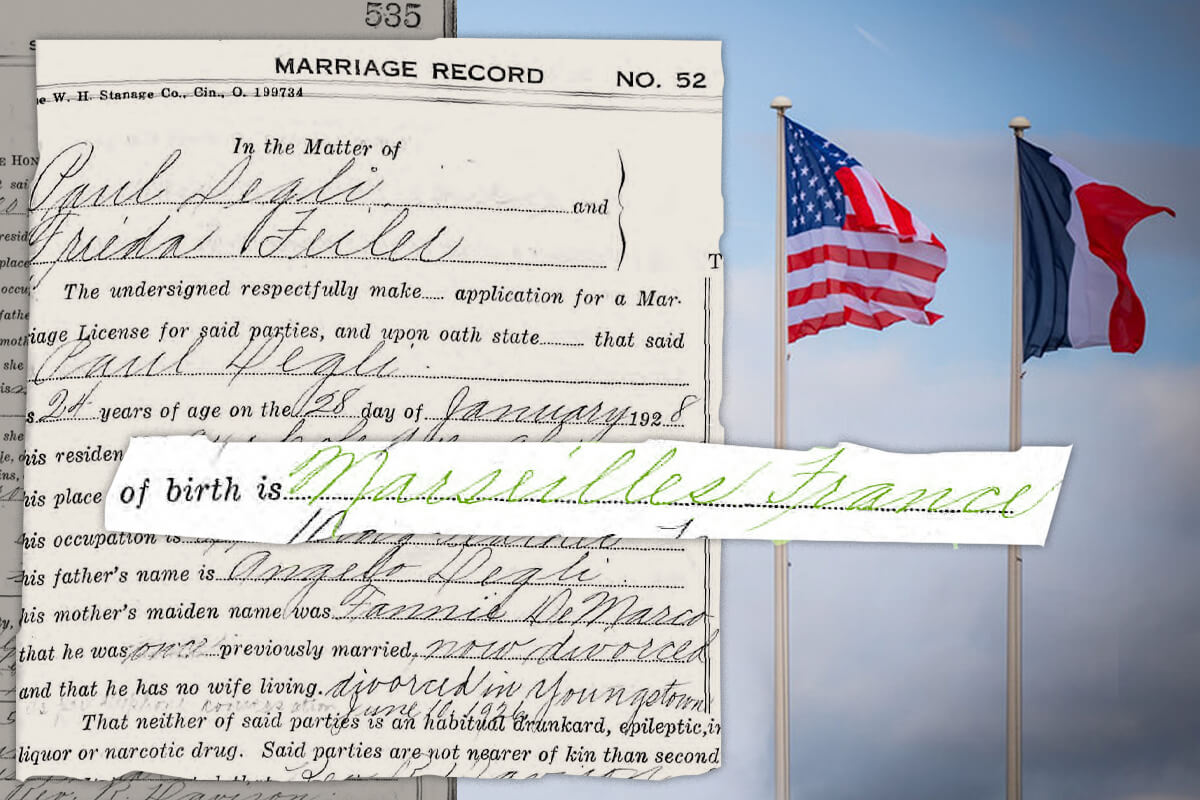 535
MARRIAGE RECORD NO. 52
e W. H. Stanage Co., Cin., O. 199734
In the Matter of
Paul Degli and
Frieda Feiler
The undersigned respectfully make application for a Mar-
iage License for said parties, and upon oath state that said
Paul Degli
s 24 years of age on the 28 day of January 1928
his residen
his place of birth is Marseilles France
his occupation is
his father's name is Angelo Degli
his mother's maiden name was Fannie DeMarco
that he was once previously married, now divorced
and that he has no wife living. divorced in Youngstown
June 1926
That neither of said parties is an habitual drunkard, epileptic, i
liquor or narcotic drug. Said parties are not nearer of kin than second
Rev. R. Davison